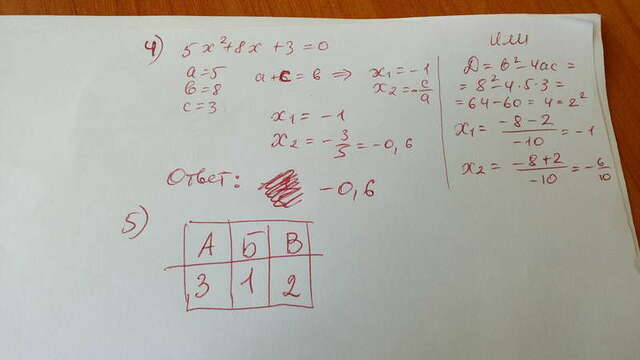 4) 5x²+8x+3=0
a=5 a+c=b ⇒ x₁=-1
b=8 x₂=-c/a
c=3
x₁=-1
x₂=-3/5=-0,6
Ответ: -0,6
или
D=b²-4ac=
=8²-4·5·3=
=64-60=4=2²
x₁=(-8-2)/-10=-1
x₂=(-8+2)/-10=-6/10
5)
А Б В
3 1 2